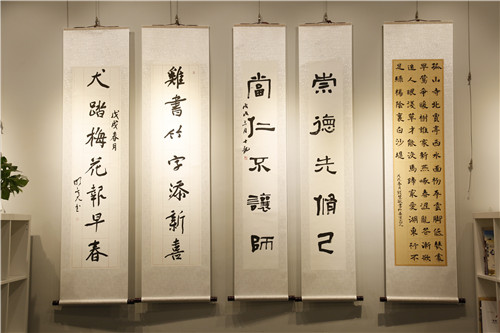 孤山寺北賈亭西水面初平雲腳低幾處
早鶯爭暖樹誰家新燕啄春泥亂花漸欲
迷人眼淺草才能沒馬蹄最愛湖東行不
足綠楊陰裏白沙堤
崇德先脩己
當仁不讓師
雞書竹字添新喜
犬踏梅花報早春
戊戌春月